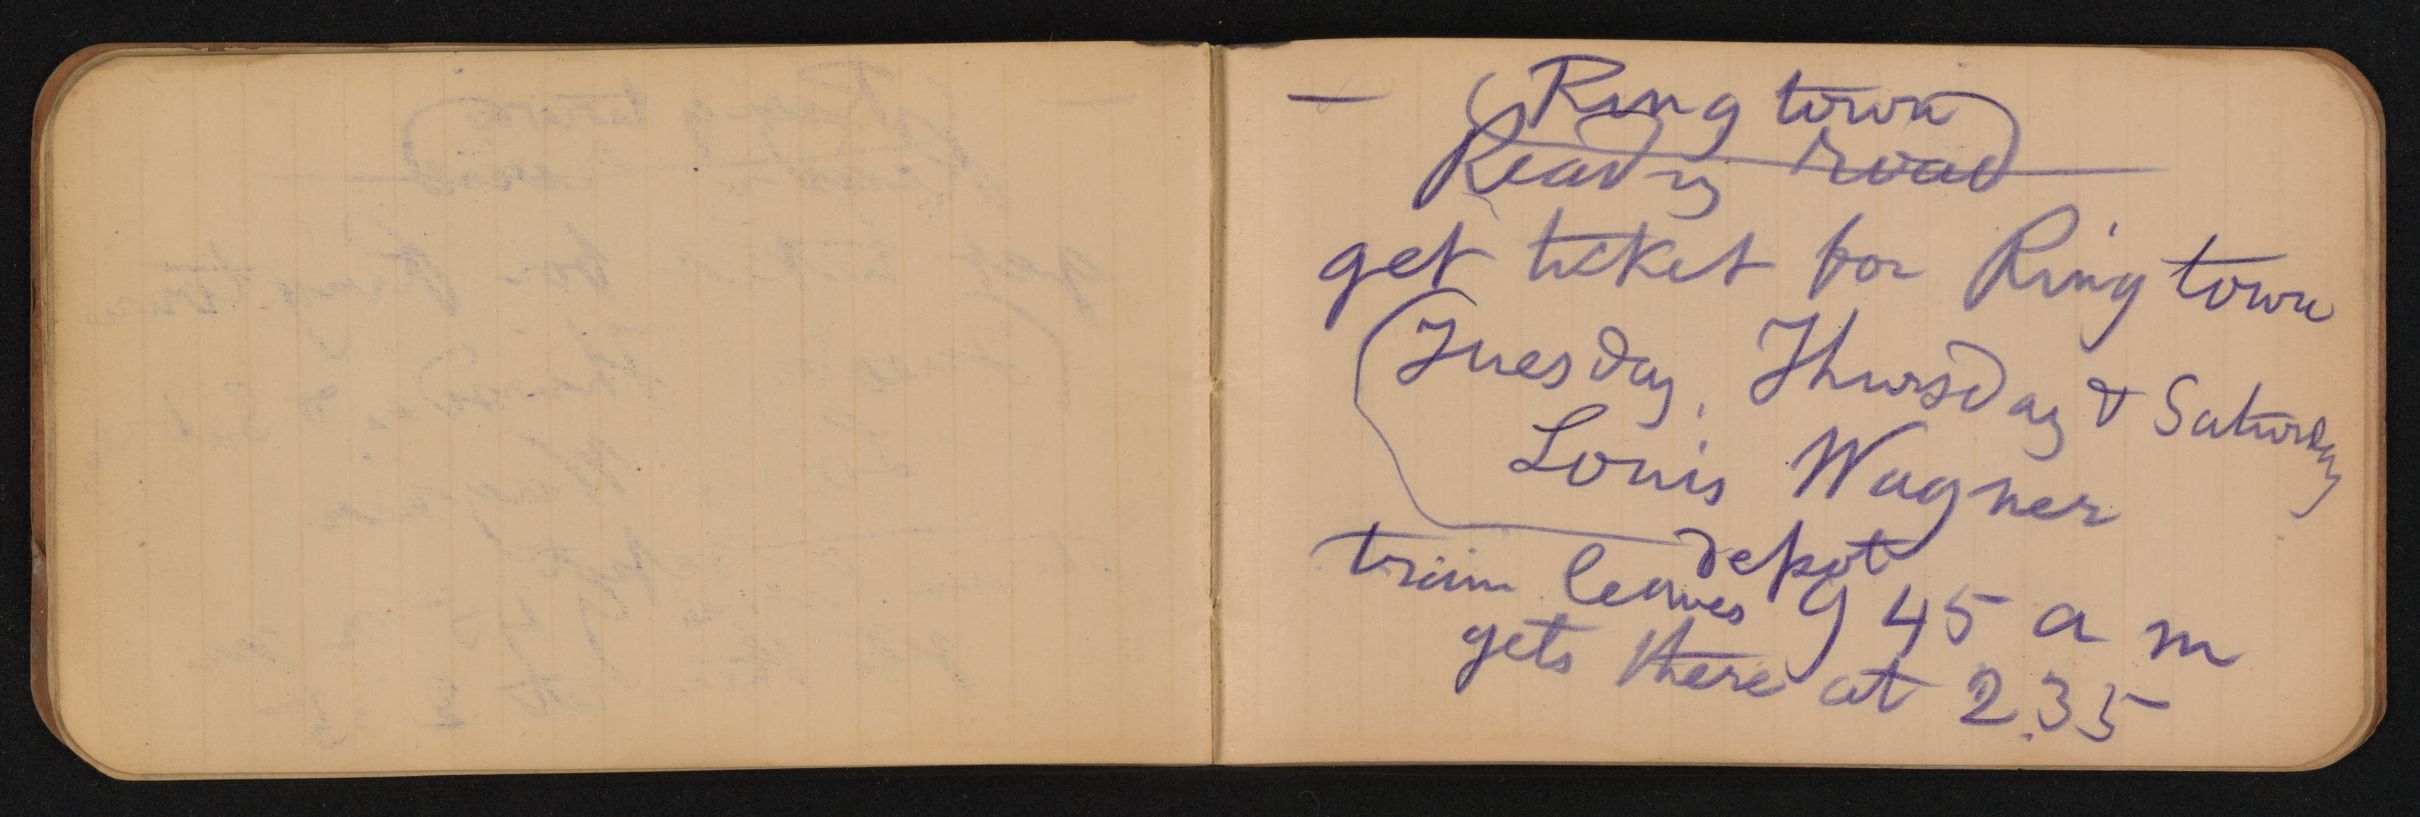 — Ringtown
Reading road
get ticket for Ringtown
Tuesday, Thursday & Saturday
Louis Wagner
depot
train leaves 9 45 a m
gets there at 2.35